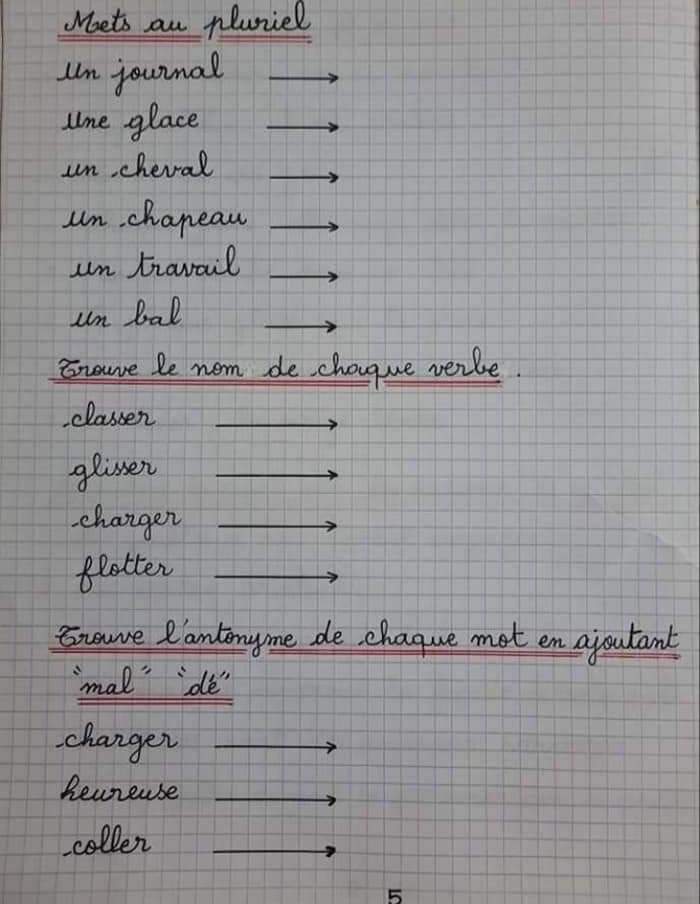 Mets au pluriel
un journal →
une glace →
un cheval →
un chapeau →
un travail →
un bal →
Trouve le nom de chaque verbe.
classer →
glisser →
charger →
flotter →
Trouve l'antonyme de chaque mot en ajoutant
"mal" "dé"
charger →
heureuse →
coller →
5